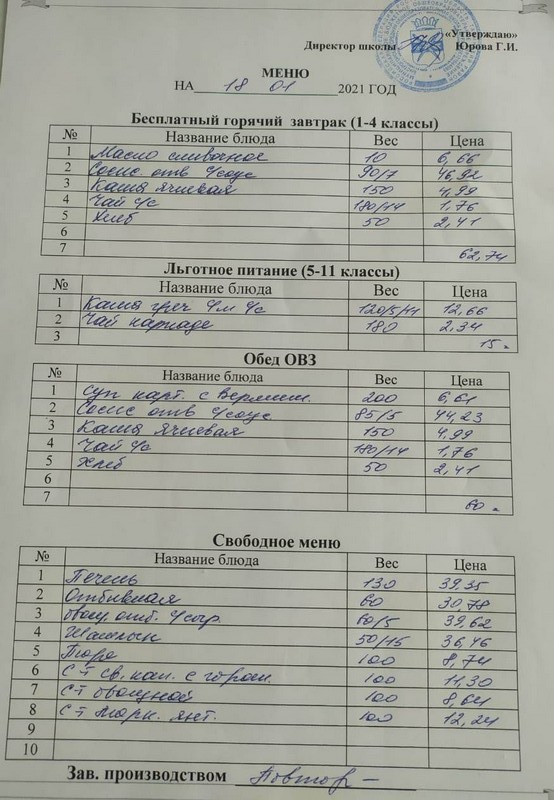 «Утверждаю»
Директор школы Юрова Г.И.
МЕНЮ
НА 18 01 2021 ГОД
Бесплатный горячий завтрак (1-4 классы)
№ Название блюда Вес Цена
1 Масло сливочное 10 6,66
2 Сосис. отв ч/соус 90/7 46,92
3 Каша ячневая 150 4,99
4 Чай ч/с 180/14 1,76
5 Хлеб 50 2,41
6
7 62,74
Льготное питание (5-11 классы)
№ Название блюда Вес Цена
1 Каша греч ч/м ч/с 120/5/11 12,66
2 Чай каркаде 180 2,34
3 15 .
Обед ОВЗ
№ Название блюда Вес Цена
1 Суп карт. с Вермиш. 200 6,61
2 Сосис отв ч/соус 85/5 44,23
3 Каша ячневая 150 4,99
4 Чай ч/с 180/14 1,76
5 Хлеб 50 2,41
6
7 60 .
Свободное меню
№ Название блюда Вес Цена
1 Печень 130 39,35
2 Отбивная 60 30,78
3 отб. ч/сыр. 60/5 39,62
4 Шашлык 50/15 36,46
5 Пюре 100 8,74
6 С-т св. кап. с горош. 100 11,30
7 С-т овощной 100 8,64
8 С-т морк. 100 12,24
9
10
Зав. производством